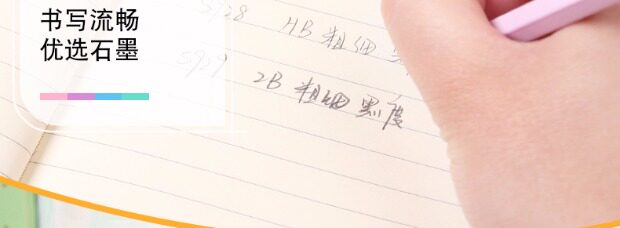 书写流畅
优选石墨
5928 HB 粗细黑
5929 2B 粗细黑度